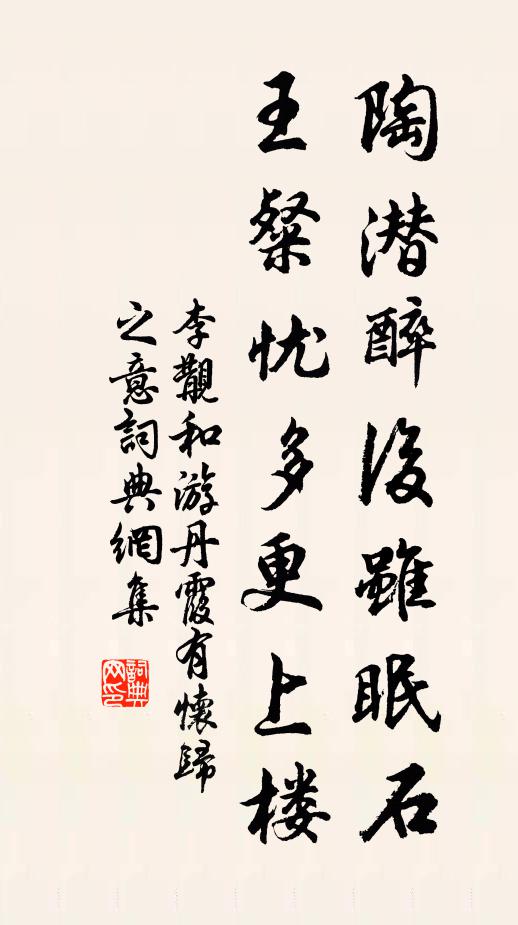 陶潜醉後雖眠石
王粲忧多更上楼
李覯和游丹霞有懷歸
之意詞典網集
詞典网印